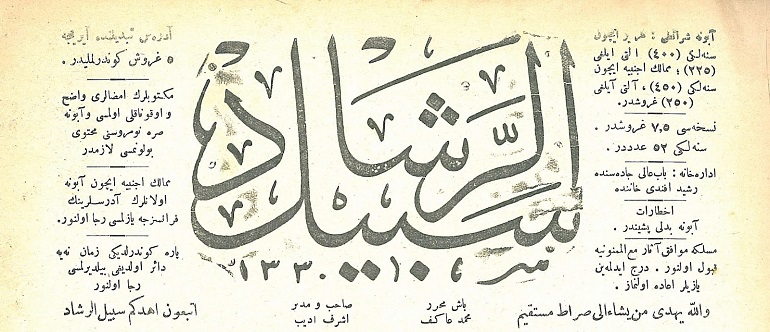 آبونه شرائطی : هر یر ایچون
سنه‌لکی (٤٠٠) ، آلتی آیلغی
(٢٢٥) ؛ ممالک اجنبیه ایچون
سنه‌لکی (٤٥٠) ، آلتی آیلغی
(٢٥٠) غروشدر.
نسخه‌سی ٧,٥ غروشدر .
سنه‌لکی ٥٢ عدددر .
اداره‌خانه : باب‌عالی جاده‌سنده
رشید افندی خاننده
اخطارات
آبونه بدلی پشیندر .
مسلکه موافق آثار مع‌الممنونیه
قبول اولنور . درج ایدلمه‌ین
یازیلر اعاده اولنماز .
سبیل الرشاد
١٣٣٠
آدرس تبدیلنده آیریجه
٥ غروش کوندرلملیدر.
مکتوبلرک امضالری واضح
و اوقوناقلی اولمسی و آبونه
صره نومروسنی محتوی
بولونمسی لازمدر
ممالک اجنبیه ایچون آبونه
اولانلرک آدرسلرینک
فرانسزجه یازلمسی رجا اولنور.
پاره کوندرلدیکی زمان نه‌یه
دائر اولدیغی بیلدیرلمسی
رجا اولنور
والله یهدی من یشاء الی صراط مستقیم
باش محرر
محمد عاکف
صاحب و مدیر
اشرف ادیب
اتبعون اهدکم سبیل الرشاد